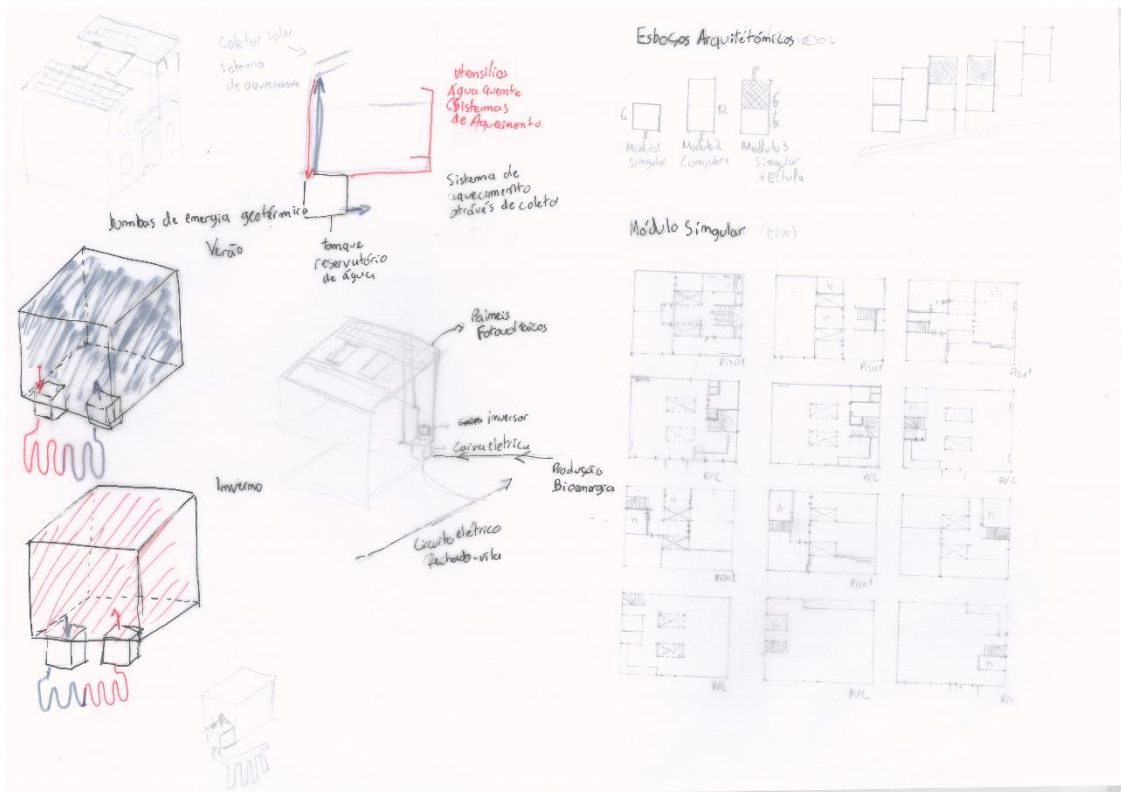 Coletor solar
sistema
de aquecimento
utensílios
Água quente
Sistemas
de Aquecimento
Sistema de
aquecimento
através de coleto
tanque
reservatório
de água
bombas de energia geotérmica
Verão
Paineis
Fotovoltaicos
inversor
Caixa eletrica
Produção
Bioenergia
Circuito elétrico
fechado-vila
Inverno
Esboços Arquitetómicos
6
8
Modulo 1
Singular
12
Modulo 2
Conjunto
8
6
6
Modulo 3
Singular
+ Estufa
Módulo Singular (1:200)
Piso1
Piso1
Piso1
R/C
R/C
R/C
Piso1
Piso1
R/C
R/C
R/C